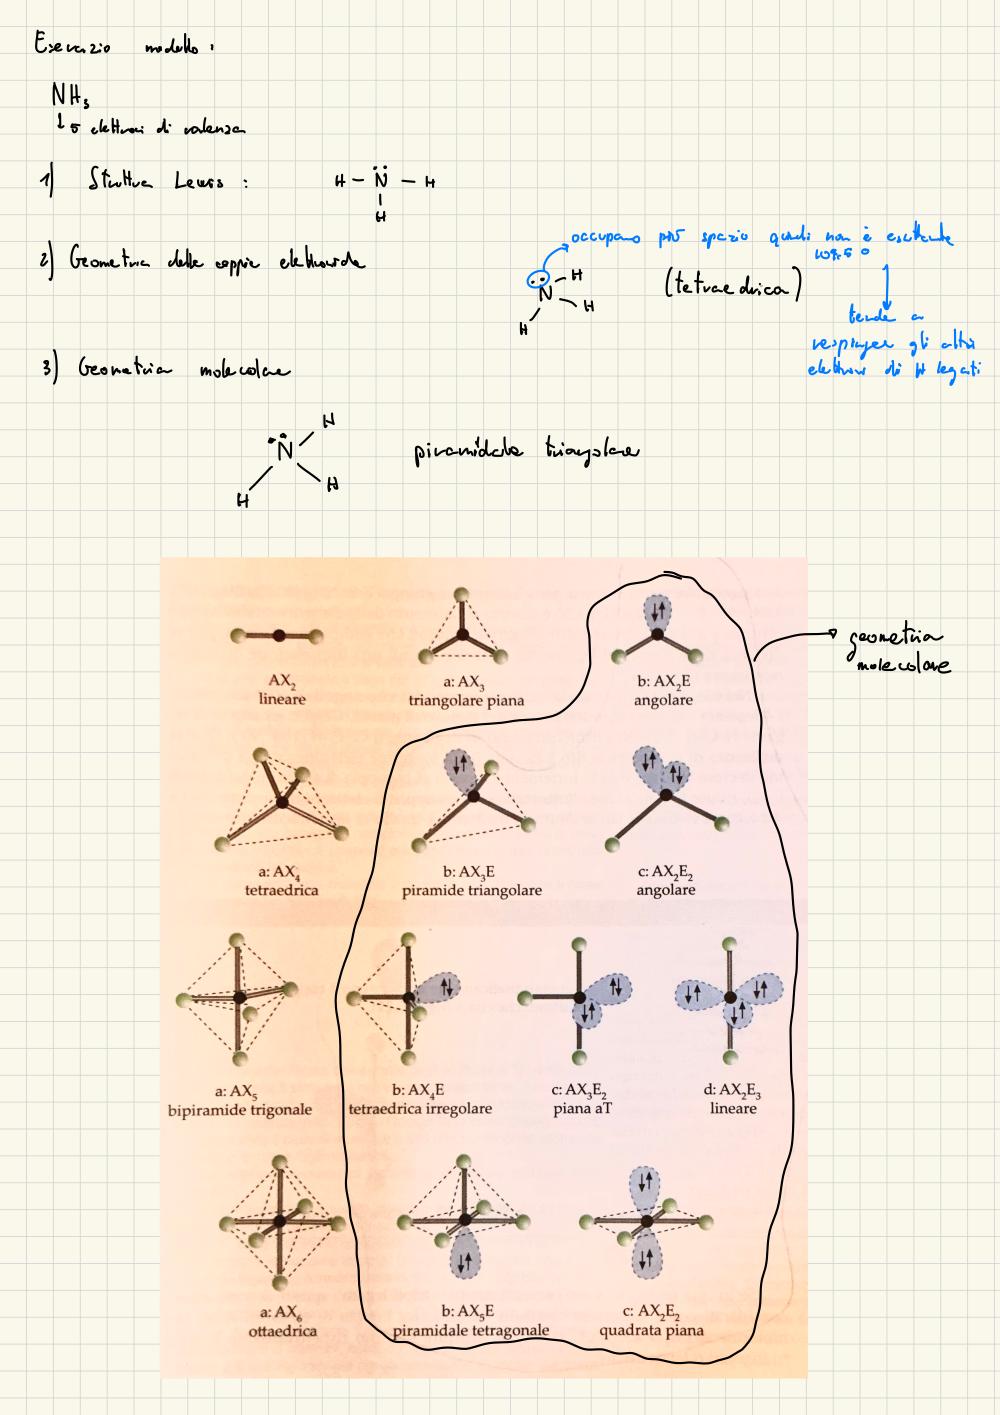 Esercizio modello :
NH3
↓ 5 elettroni di valenza
1) Struttura Lewis : H – N̈ – H
H
2) Geometria delle coppie elettroniche
occupano più spazio quindi non è esattamente
109.5°
N H
H
H
(tetraedrica)
tende a
respingere gli altri
elettroni di H legati
3) Geometria molecolare
N H
H
H
piramidale triangolare
AX2
lineare
a: AX3
triangolare piana
b: AX2E
angolare
geometria
molecolare
a: AX4
tetraedrica
b: AX3E
piramide triangolare
c: AX2E2
angolare
a: AX5
bipiramide trigonale
b: AX4E
tetraedrica irregolare
c: AX3E2
piana aT
d: AX2E3
lineare
a: AX6
ottaedrica
b: AX5E
piramidale tetragonale
c: AX2E2
quadrata piana